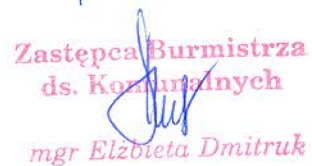 Zastępca Burmistrza
ds. Komunalnych
mgr Elżbieta Dmitruk